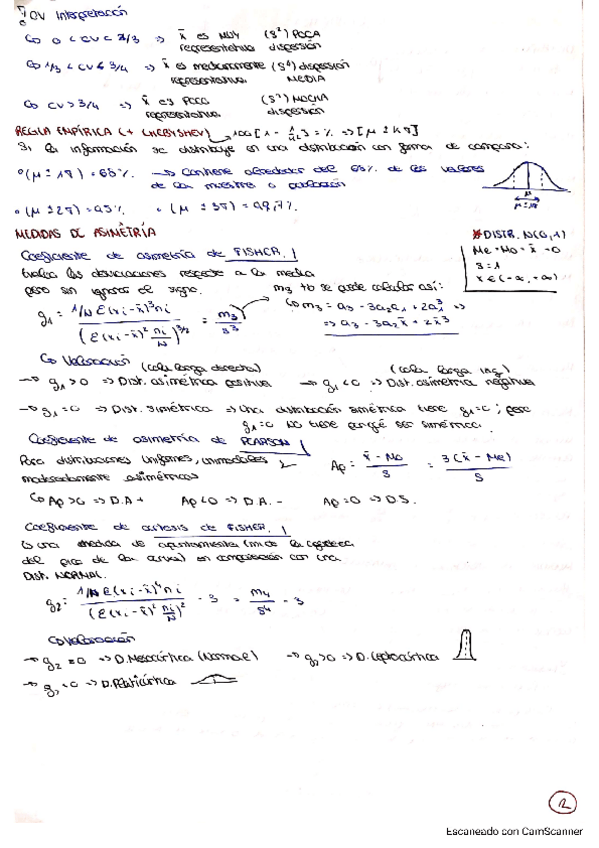 CV Interpretación
0 < CV < 1/3 => x̄ es MUY (S²) POCA
representativa dispersión
1/3 < CV < 3/4 => x̄ es medianamente (S²) dispersión
representativa MEDIA
CV > 3/4 => x̄ es POCO (S²) MUCHA
representativa dispersión
REGLA EMPÍRICA (+ CHEBYSHEV) 100[1 - 1/k²] = % => [μ ± kS]
Si la información se distribuye en una distribución con forma de campana:
(μ ± 1S) = 68% -> Contiene alrededor del 68% de los valores
de la muestra o población
(μ ± 2S) = 95% (μ ± 3S) = 99,7%
μ
MEDIDAS DE ASIMETRÍA
* DISTR. N(0,1)
Me = Mo = x̄ = 0
S = 1
x ∈ (-∞, +∞)
Coeficiente de asimetría de FISHER
Evalúa las desviaciones respecto a la media
pero sin ignorar el signo.
m3 tb se puede calcular así:
m3 = a3 - 3a2a1 + 2a1³ =>
=> a3 - 3a2x̄ + 2x̄³
g1 = 1/N Σ(xi - x̄)³ni / (Σ(xi - x̄)² ni/N)^3/2 = m3/S³
Valoración (cola larga derecha) (cola larga izq)
-> g1 > 0 => Dist. asimétrica positiva -> g1 < 0 => Dist. asimétrica negativa
-> g1 = 0 => Dist. simétrica => Una distribución simétrica tiene g1 = 0; pero
g1 = 0 NO tiene porqué ser simétrica.
Coeficiente de asimetría de PEARSON
Para distribuciones Uniformes, unimodales y
moderadamente asimétricas
Ap = x̄ - Mo / S = 3(x̄ - Me) / S
Ap > 0 => D.A + Ap < 0 => D.A. - Ap = 0 => D.S.
Coeficiente de curtosis de FISHER
Es una medida de apuntamiento de la
del pico de la curva) en comparación con una
Dist. NORMAL.
g2 = 1/N Σ(xi - x̄)⁴ni / (Σ(xi - x̄)² ni/N)² - 3 = m4/S⁴ - 3
Valoración
-> g2 = 0 => D. Mesocúrtica (Normal) -> g2 > 0 => D. Leptocúrtica
-> g2 < 0 => D. Platicúrtica
2
Escaneado con CamScanner